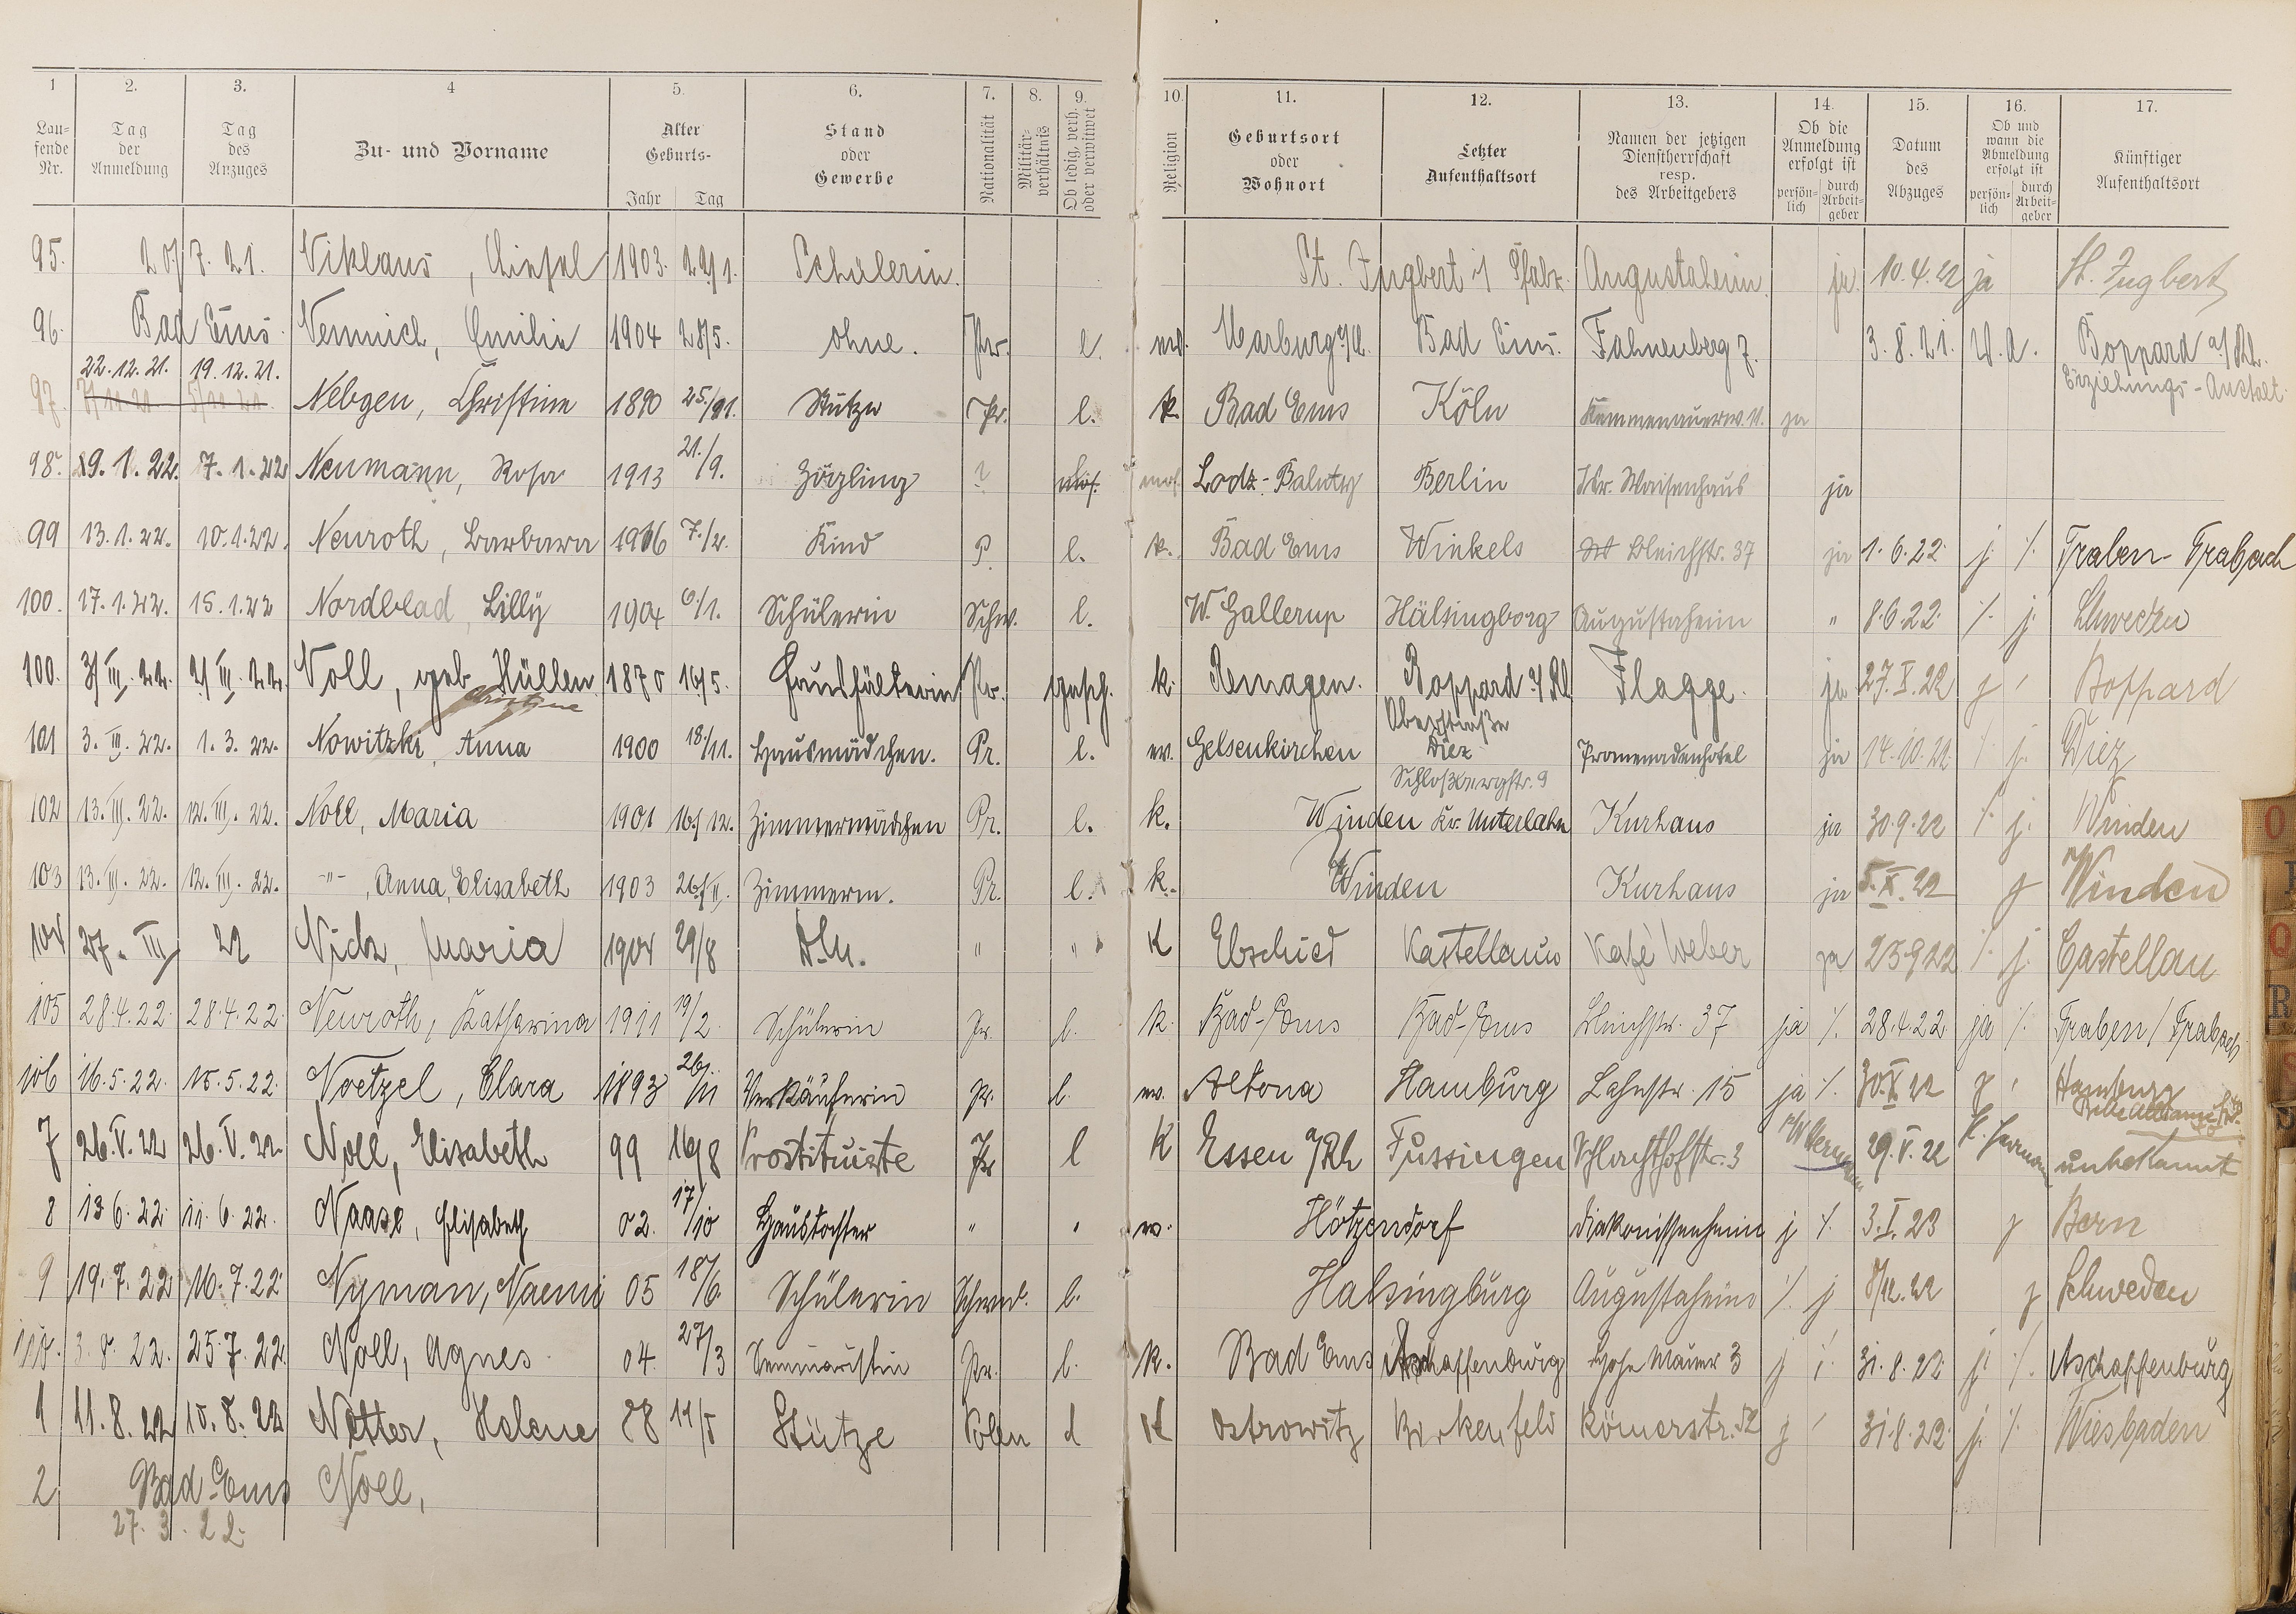 1 2. 3. 4 5. 6. 7. 8. 9. 10. 11. 12. 13. 14. 15. 16. 17.
Lau-fende Nr. Tag der Anmeldung Tag des Anzuges Zu- und Vorname Alter Geburts- Jahr Tag Stand oder Gewerbe Nationalität Militär-verhältnis Ob ledig, verh. oder verwitwet Religion Geburtsort oder Wohnort Letzter Aufenthaltsort Namen der jetzigen Dienstherrschaft resp. des Arbeitgebers Ob die Anmeldung erfolgt ist persön-lich durch Arbeit-geber Datum des Abzuges Ob und wann die Abmeldung erfolgt ist persön-lich durch Arbeit-geber Künftiger Aufenthaltsort
95. 20/7. 21. Niklaus, 1903. 29/1. Schülerin. St. Ingbert i/ Pfalz. Augustaheim. ja. 10.4.22 ja St. Ingbert
96. Bad Ems. Nennich, Emilie 1904 28/5. ohne. Pr. l. Marburg Bad Ems. Fahnenberg 7. 3.8.21. Boppard a/Rh. Erziehungs-Anstalt
97. 22.12.21. 19.12.21. Nebgen, Christine 1890 25./ Stütze Pr. l. k. Bad Ems Köln Kemmenauerw. ja
98. 19.1.22. 7.1.22 Neumann, Rosa 1913 21./9. Zögling ? Lodz-Baluty Berlin Isr. Waisenhaus ja
99 13.1.22. 10.1.22. Neuroth, Barbara 1916 7./2. Kind P. l. k. Bad Ems Winkels Bleichstr. 37 ja 1.6.22 j. /. Traben-Trabach
100. 17.1.22. 15.1.22 Nordblad, Lilly 1904 6./1. Schülerin Schw. l. W. Gallerup Hälsingborg Augustaheim " 8.6.22. /. j. Schweden
100. 3/III.22. 2/III.22. Noll, geb. Hüllen Christine 1870 16/5. Haushälterin Pr. gesch. k. Remagen. Boppard a/Rh Oberstraße Flagge. ja 27.X.22 j / Boppard
101 3.III.22. 1.3.22. Nowitzki, Anna 1900 18./11. Hausmädchen. Pr. l. ev. Gelsenkirchen Diez Schloßbergstr. 9 Promenadenhotel ja 14.10.22 /. j. Diez
102 13.III.22. 12.III.22. Noll, Maria 1901 16./12. Zimmermädchen Pr. l. k. Winden Kr. Unterlahn Kurhaus ja 30.9.22 /. j. Winden
103 13.III.22. 12.III.22. -"-, Anna, Elisabeth 1903 26./II. Zimmerm. Pr. l. k. Winden Kurhaus ja 5.X.22 j Winden
104 27. III 22 Nick, Maria 1904 29/8 D.M. " " K Ebschied Kastellaun Kafé Weber ja 23.9.22 /. j. Castellau
105 28.4.22. 28.4.22. Neuroth, Katharina 1911 19/2. Schülerin Pr. l. k. Bad-Ems Bad-Ems Bleichstr. 37 ja /. 28.4.22 ja /. Traben/Trabach
106 16.5.22. 15.5.22. Noetzel, Clara 1893 26./11 Verkäuferin Pr. l. ev. Altona Hamburg Lahnstr. 15 ja /. 30.X.22 j / Hamburg
7 26.V.22 26.V.22. Noll, Elisabeth 99 16/8 Prostituiete Pr l K Essen a/Rh Fussingen Schlachthofstr. 3 29.V.22 unbekannt
8 13.6.22. 11.6.22. Naase, Elisabeth 02. 17/10 Haustochter " " ev. Hötzendorf Diakonissenheim j /. 3.I.23 j Bern
9 19.7.22 16.7.22. Nyman, Naemi 05 18/6. Schülerin Schwed. l. Halsingburg Augustaheim /. j 8/12.22 j Schweden
110. 3.8.22. 25.7.22. Noll, Agnes 04. 27/3 Seminaristin Pr. l. k. Bad Ems Aschaffenburg Hohe Mauer 3 j /. 31.8.22. j. /. Aschaffenburg
1 11.8.22 10.8.22 Netter, Helene 88 Stütze Polen l K Ostrowitz Birkenfeld Römerstr. j / 31.8.22. j. /. Wiesbaden
2 Bad Ems Noll,
27.3.22.